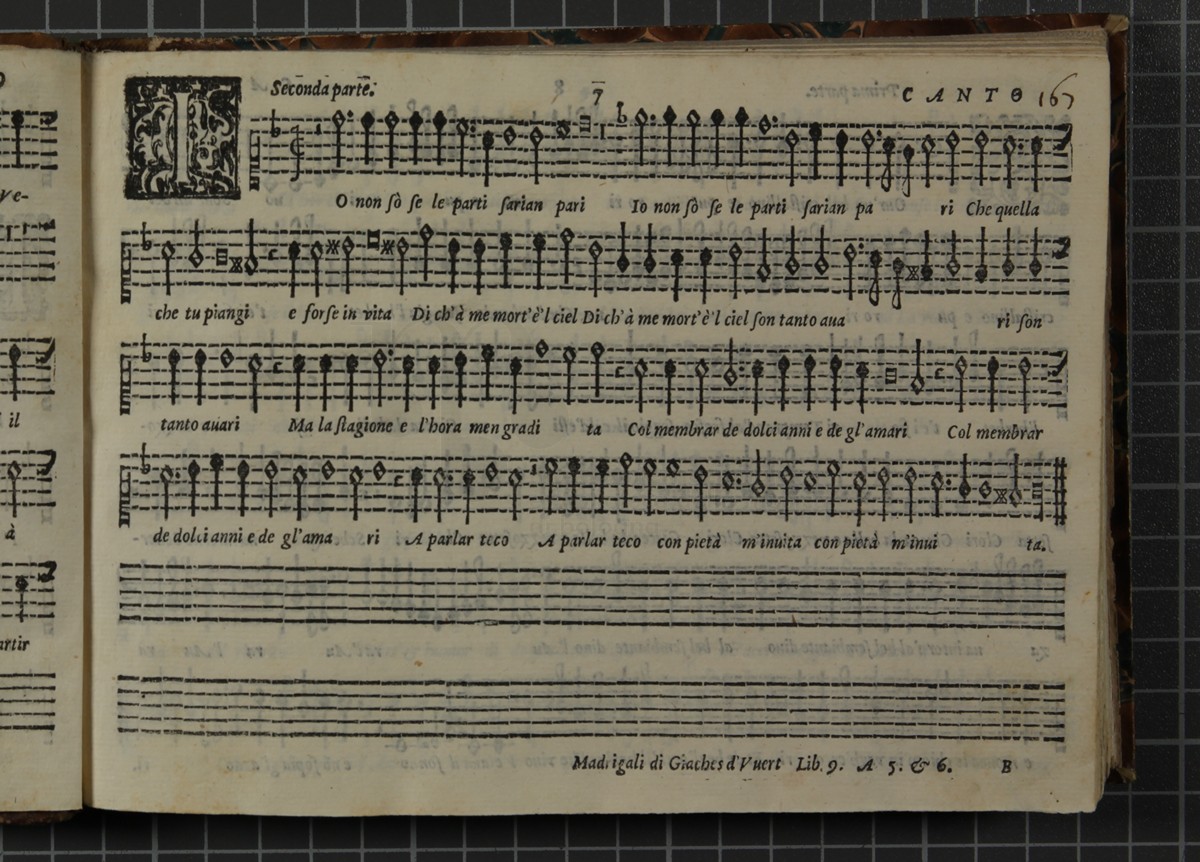 Ve-
i il
à
artir
Secōda parte. 7 CANTO 167
IO non sò se le parti sarian pari Io non sò se le parti sarian pa ri Che quella
che tu piangi e forſe in vita Di ch'à me mort'è'l ciel Di ch'à me mort'è'l ciel ſon tanto aua ri ſon
tanto auari Ma la ſtagione e l'hora men gradi ta Col membrar de dolci anni e de gl'amari Col membrar
de dolci anni e de gl'ama ri A parlar teco A parlar teco con pietà m'inuita con pietà m'inui ta.
Madrigali di Giaches d'Vuert Lib. 9. A 5. & 6. B